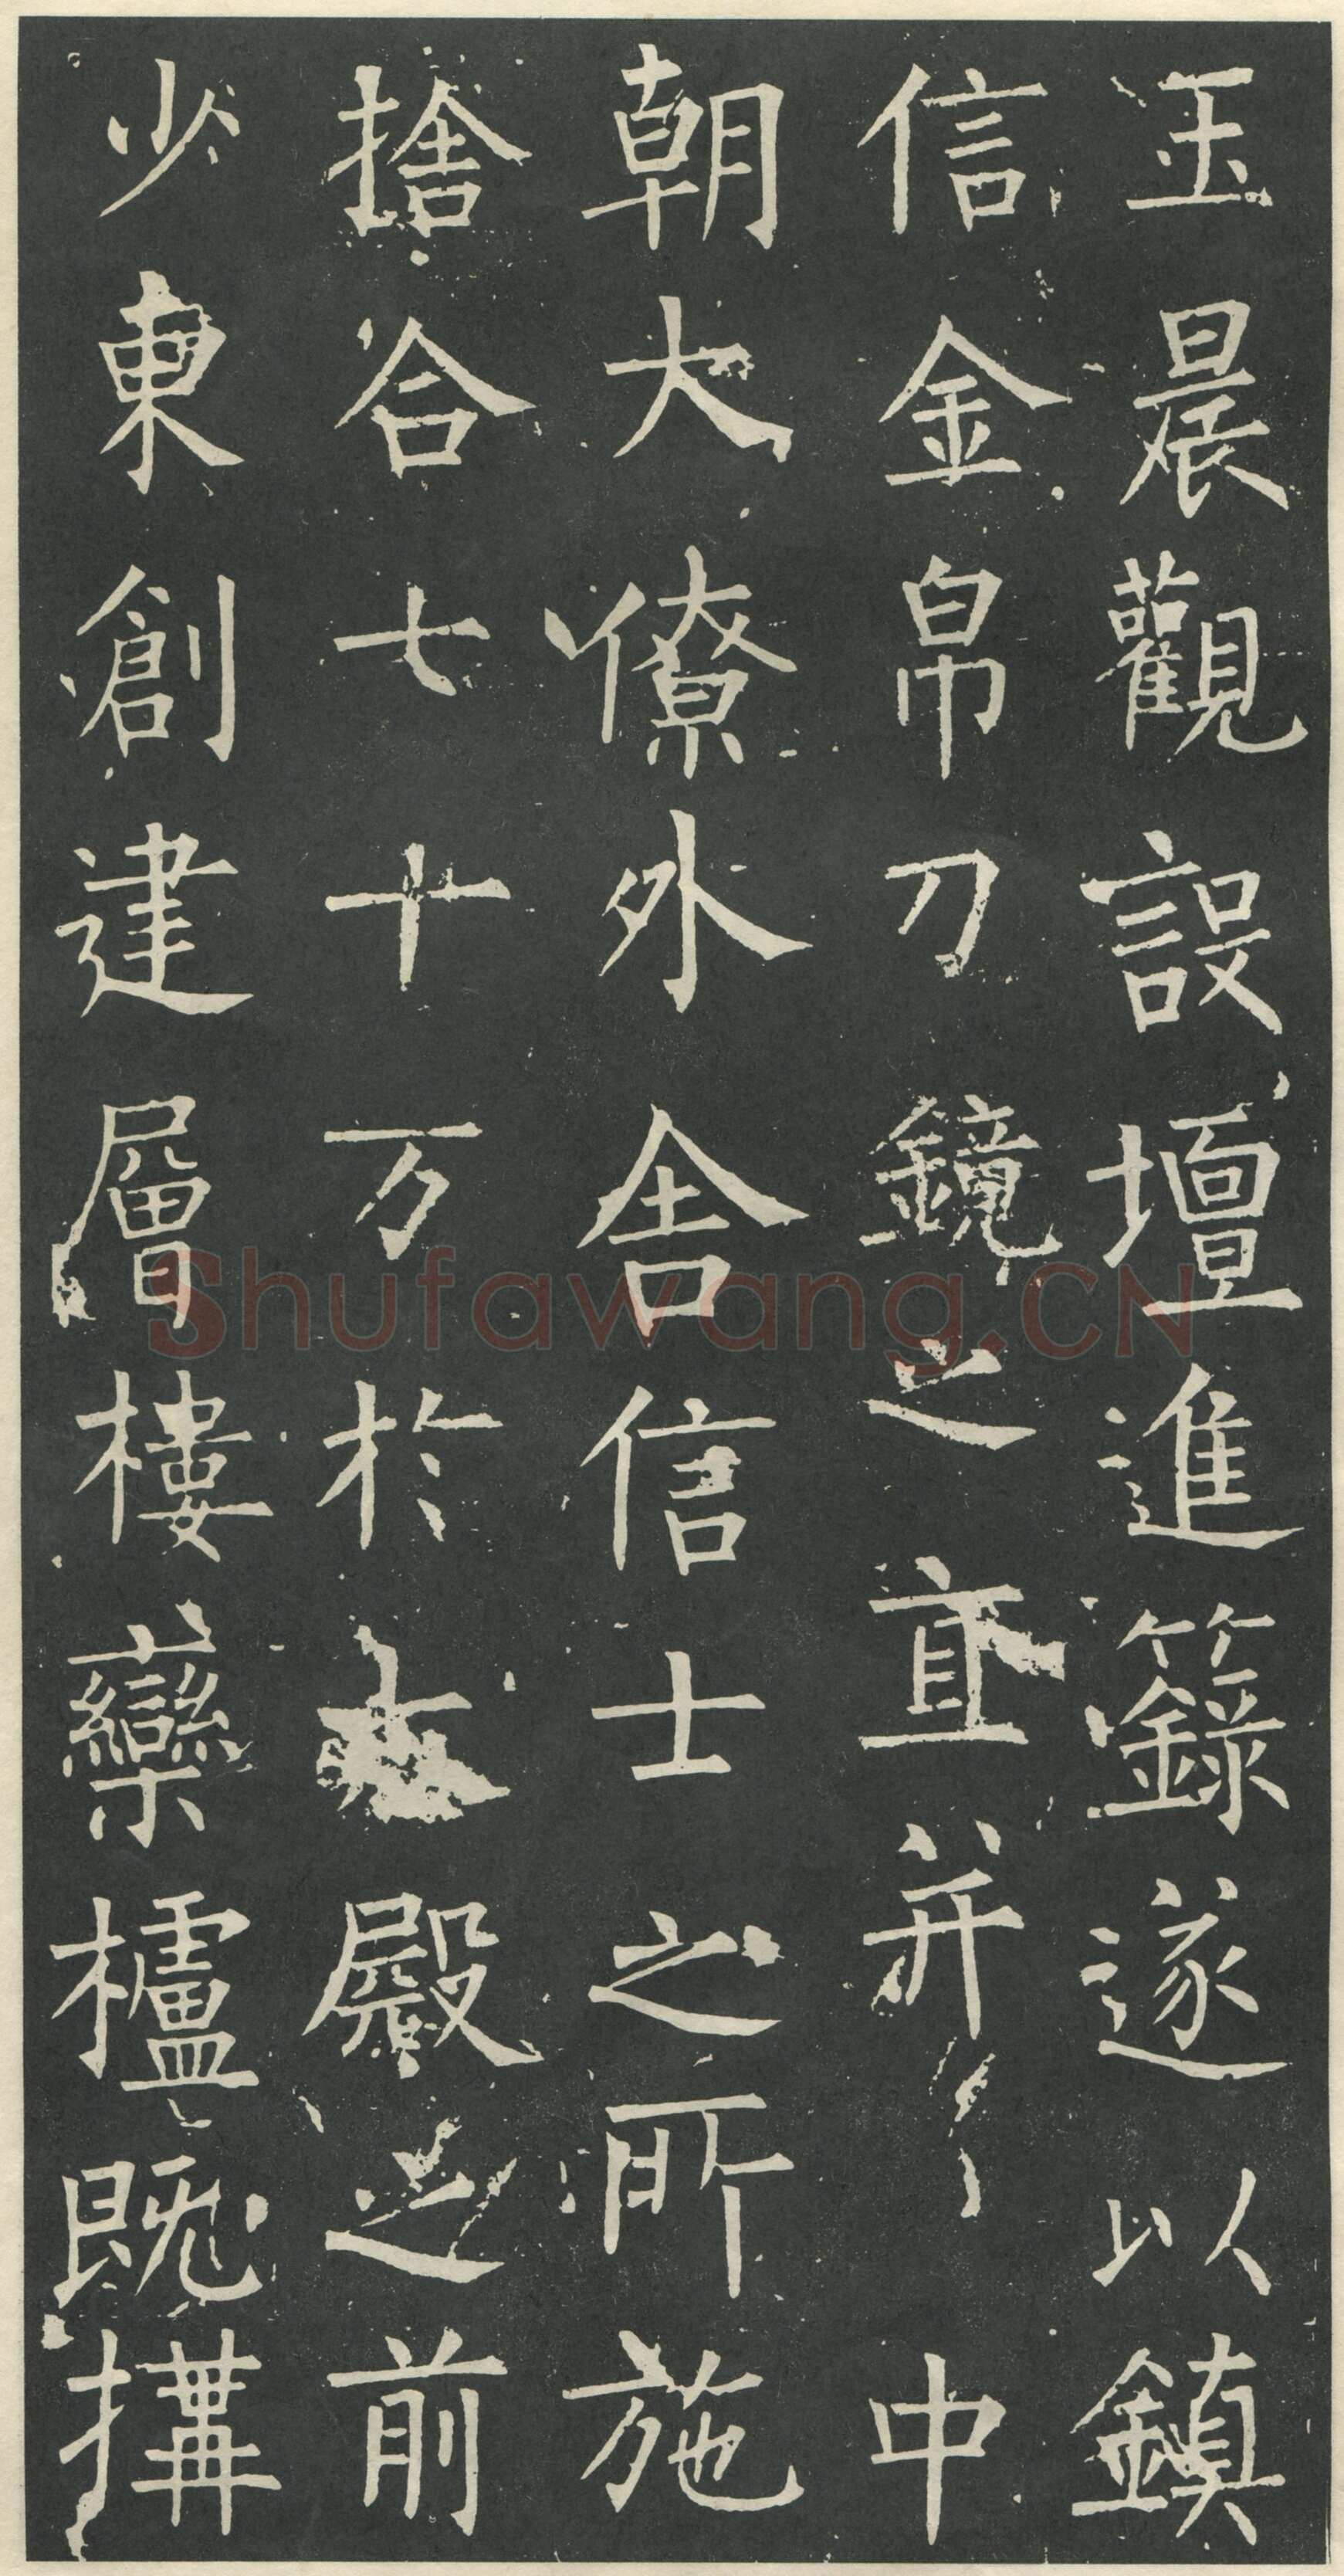 玉晨觀設壇進籙遂以鎮
信金帛刀鏡之直并中
朝大僚外舍信士之所施
捨合七十万於殿之前
少東創建層樓欒櫨既搆
Shufawang.CN